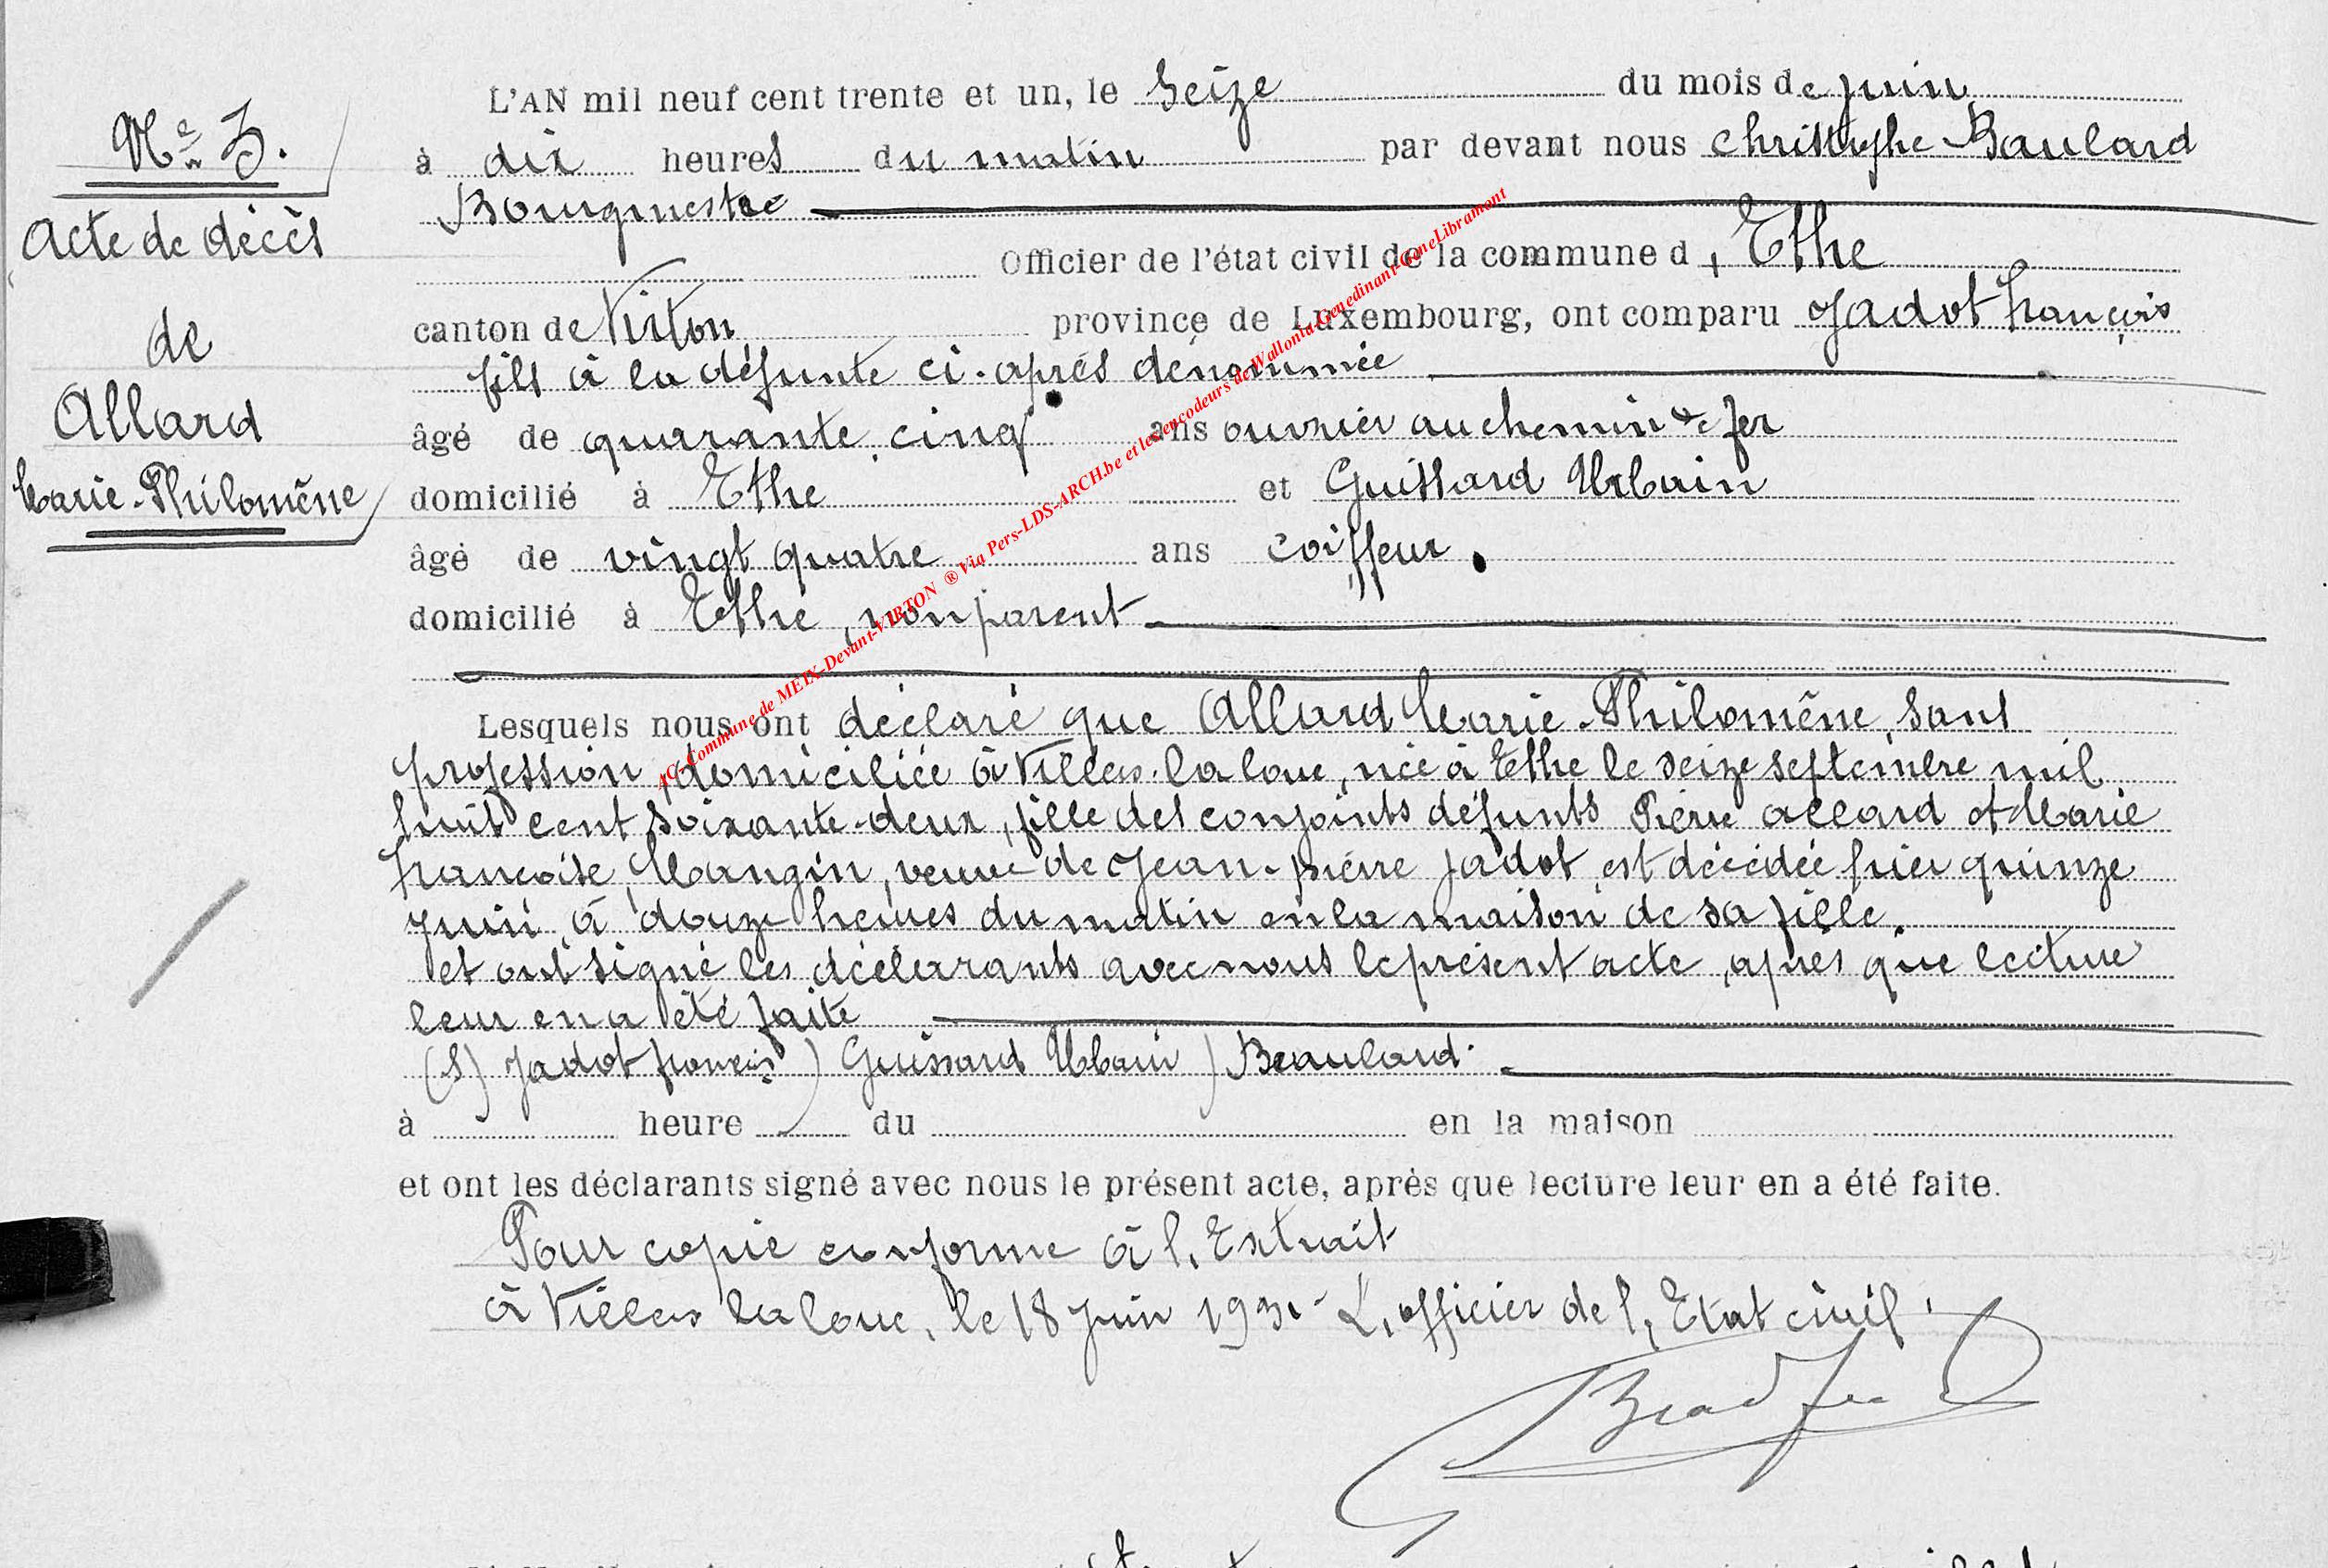 N° 3.
Acte de décès
de
Allard
Marie-Philomène
L'AN mil neuf cent trente et un, le Seize du mois de juin
à dix heures du matin par devant nous Christophe Baulard
Bourgmestre
Officier de l'état civil de la commune d'Ethe
canton de Virton province de Luxembourg, ont comparu Jadot François
fils à la défunte ci-après dénommée
âgé de quarante cinq ans ouvrier au chemin de fer
domicilié à Ethe et Guissard Urbain
âgé de vingt quatre ans coiffeur.
domicilié à Ethe, non parent
Lesquels nous ont déclaré que Allard Marie-Philomène, sans
profession, domiciliée à Villers-la loue, née à Ethe le seize septembre mil
huit cent soixante-deux, fille des conjoints défunts Pierre Allard et Marie
Françoise Mangin, veuve de Jean-pierre Jadot, est décédée hier quinze
juin à douze heures du matin en la maison de sa fille.
et ont signé les déclarants avec nous le présent acte, après que lecture
leur en a été faite
(S) Jadot François) Guissard Urbain) Beaulard.
à heure du en la maison
et ont les déclarants signé avec nous le présent acte, après que lecture leur en a été faite.
Pour copie conforme à l'Extrait
à Villers la loue, le 18 Juin 1931 - L'officier de l'Etat civil.
AC-Commune de MEIX-Devant-VIRTON ® Via Pers-LDS-ARCH.be et les encodeurs de Wallonia-Genedinant-GeneLibramont